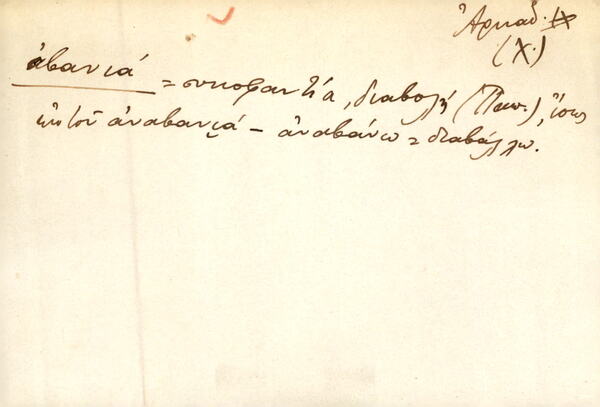 Ἀρκαδ. IX
(Χ.)
ἀβανιά = συκοφαντία, διαβολή (Παπ.), ἴσως
ἐκ τοῦ ἀναβανιά – ἀναβάνω = διαβάλλω.